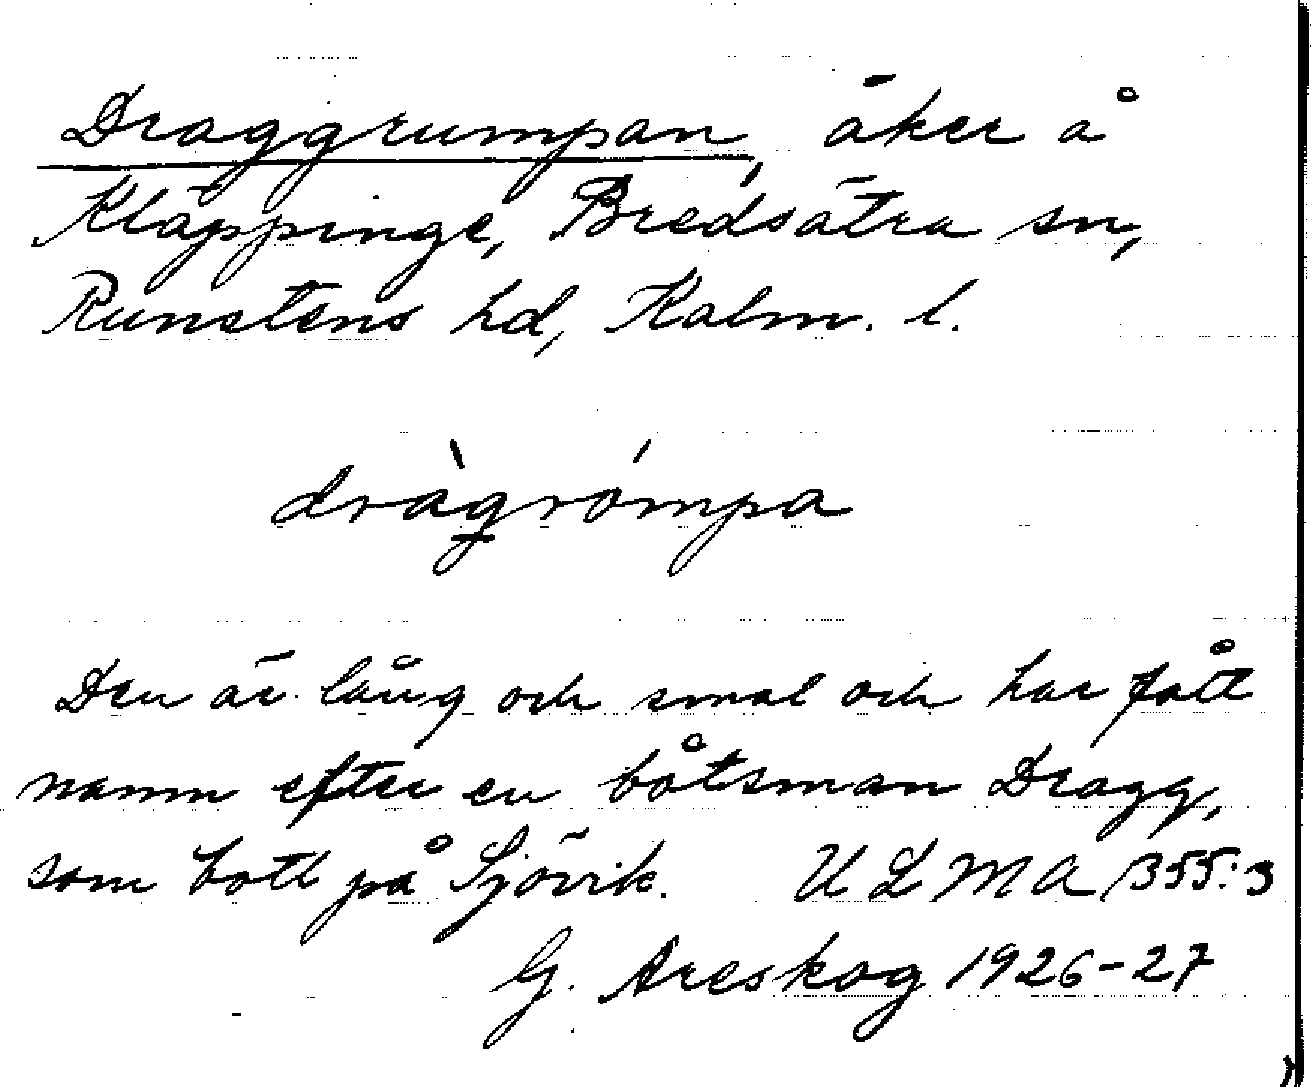 Draggrumpan, åker å
Kläppinge, Bredsätra sn,
Runstens hd, Kalm. l.
dràgrómpa
Den är lång och smal och har fått
namn efter en båtsman Dragg,
som bott på Sjövik. ULMA 1355:3
G. Areskog 1926-27